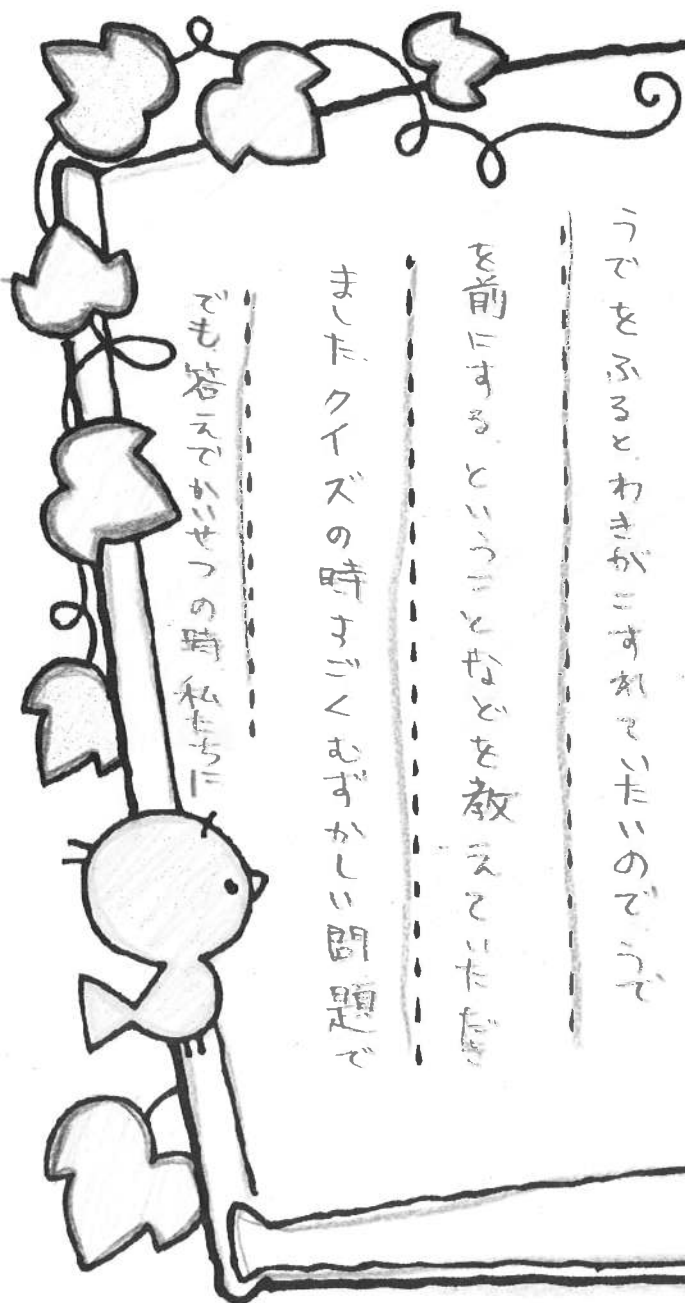 うでをふるとわきがこすれていたいので、うで
を前にする、ということなどを教えていただき
ました。クイズの時すごくむずかしい問題で
でも、答えでかいせつの時、私たちに